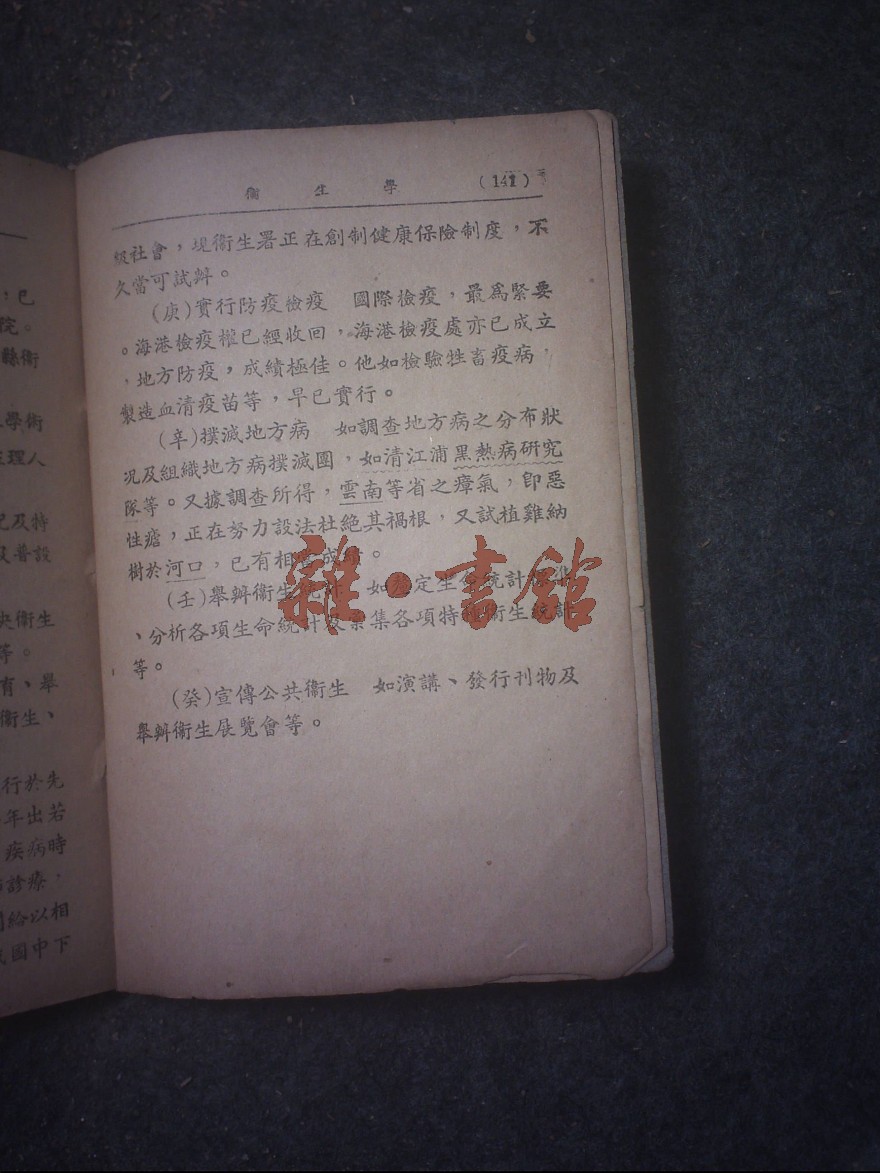 衞生學 (141)
級社會，現衞生署正在創制健康保險制度，不
久當可試辦。
(庚)實行防疫檢疫　國際檢疫，最爲緊要
。海港檢疫權已經收回，海港檢疫處亦已成立
，地方防疫，成績極佳。他如檢驗牲畜疫病，
製造血清疫苗等，早已實行。
(辛)撲滅地方病　如調查地方病之分布狀
况及組織地方病撲滅團，如清江浦黑熱病研究
隊等。又據調查所得，雲南等省之瘴氣，卽惡
性瘧，正在努力設法杜絕其禍根，又試植雞納
樹於河口，已有相當成績。
(壬)舉辦衞生統計　如 定生命統計 集
、分析各項生命統計及彙集各項特種衞生統計
等。
(癸)宣傳公共衞生　如演講、發行刊物及
舉辦衞生展覽會等。
，已
院。
縣衞
學術
理人
及特
及普設
央衞生
等。
有、舉
衞生、
行於先
年出若
疾病時
診療，
給以相
國中下
雜·書館